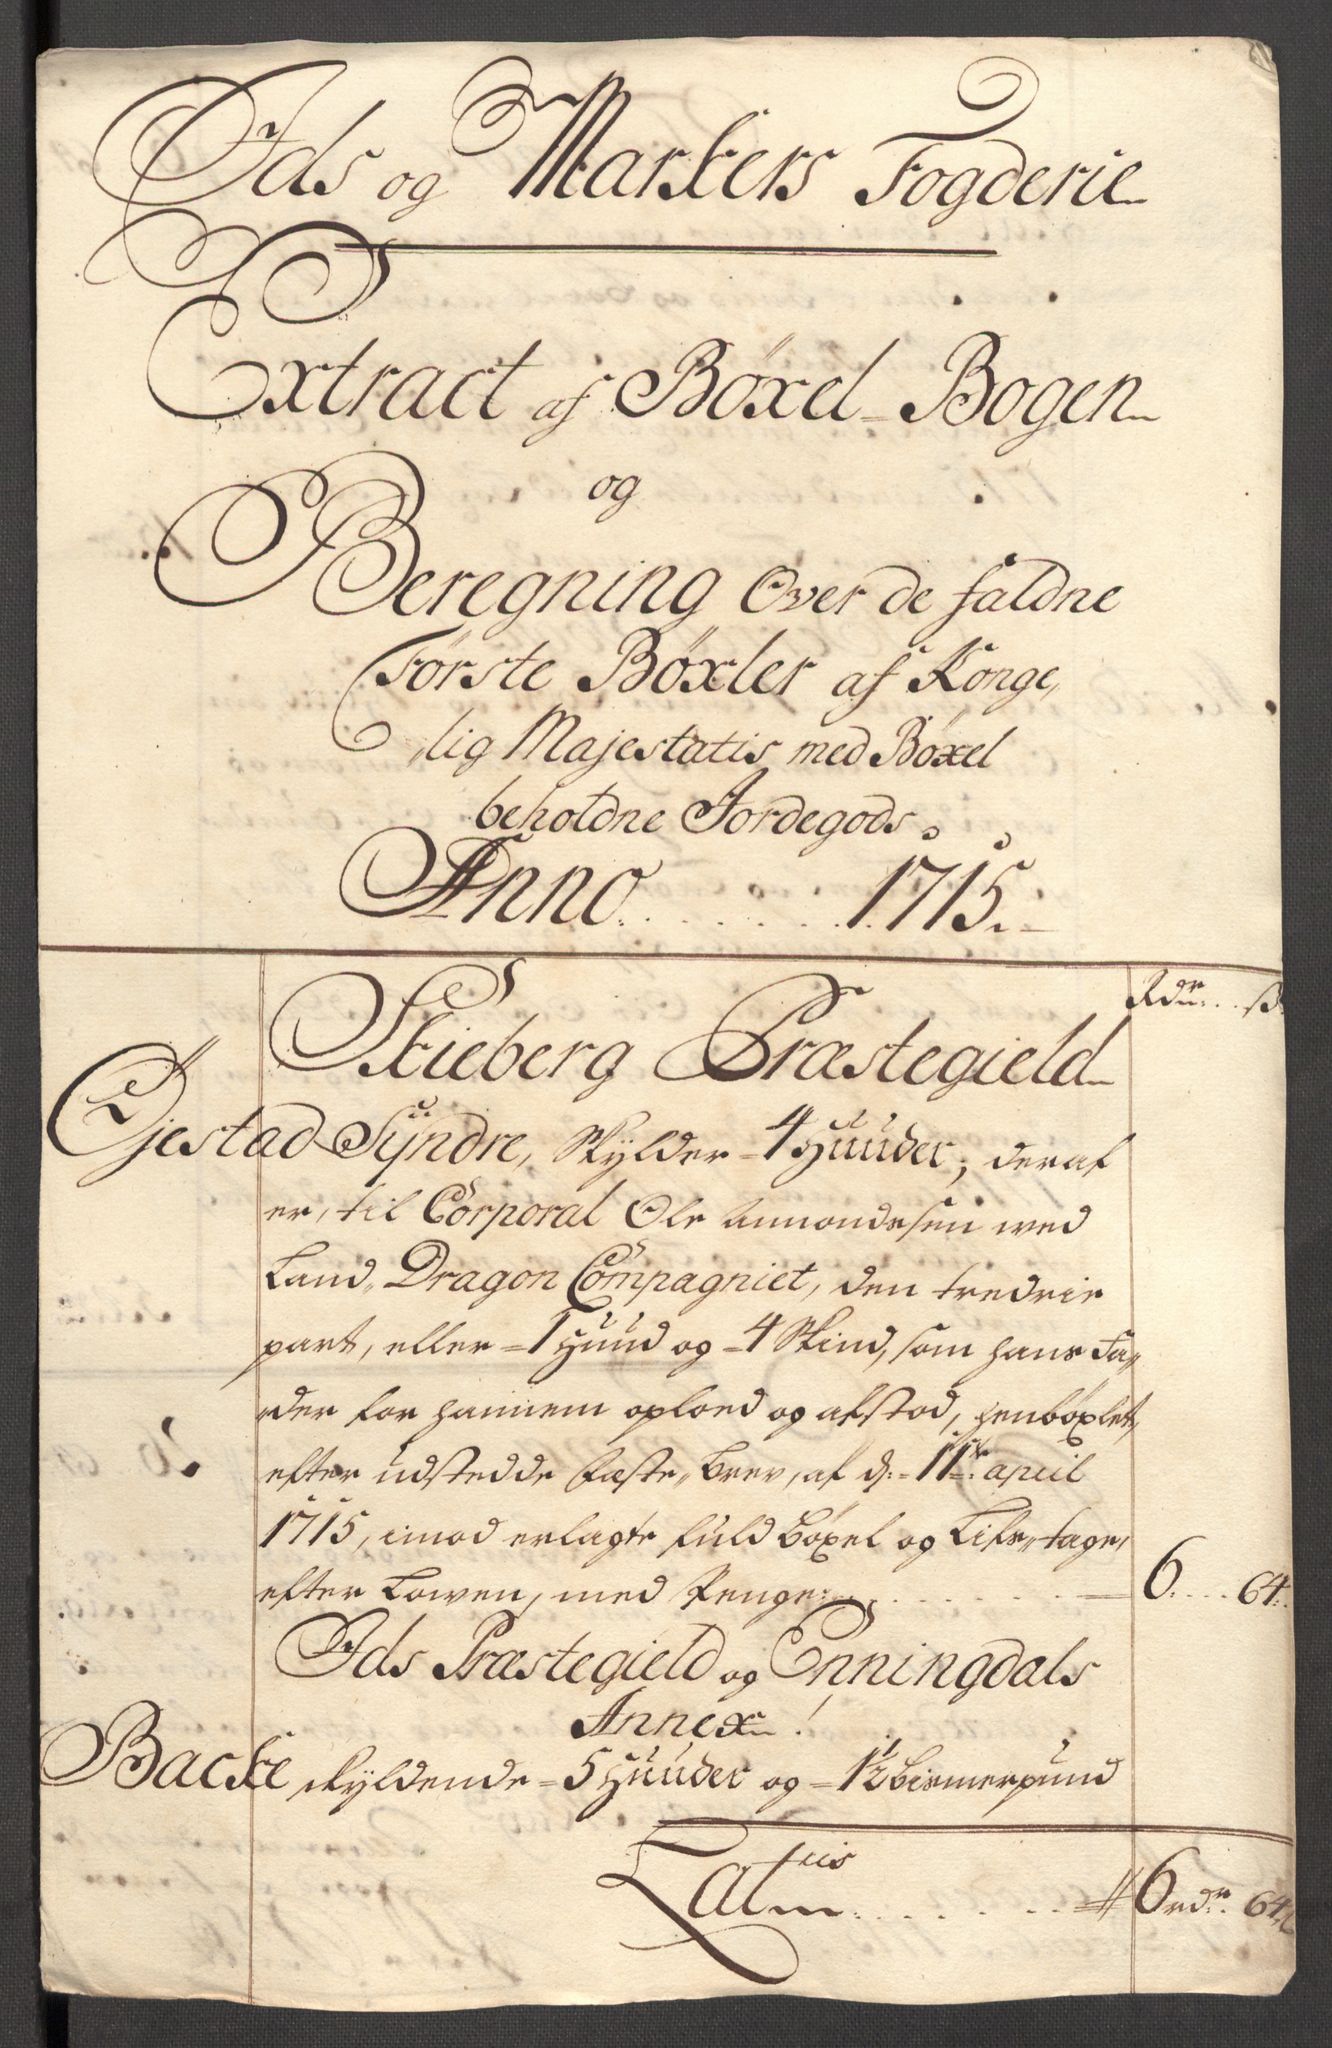 Ids og Markers Fogderie
Extract af Böxel-Bogen
og
Beregning Over de faldne
Förste Böxler af Konge,
lig Majestatis med Böxel
beholdne Jordegods.
Anno 1715.
Rdr ß
Skieberg Præstegield
Gjestad Syndre, skylder 4 Huuder; deraf
er, til Corporal Ole Amondesen wed
Land, Dragon Compagniet, den tredie
part, eller 1 Huud og 4 Skind, som hans Fa,,
der for hannem oploed og afstod, henböxlet,
efter udstedde Fæste,, brev, af d: 11te april
1715, imod erlagte fuld böxel og Lifs,, tage,
efter Lowen, med Penge: 6 64
Ids Præstegield og Enningdals
Annex!
Backe skyldende 5 Huuder og 1½ bismerpund
Latus 6 rdr 64